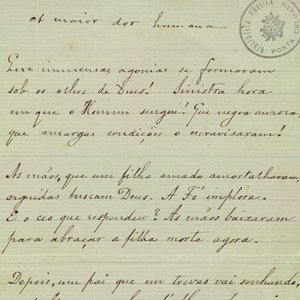 A maior dor humana
BIBLIOTHECA PUBLICA
PONTA DEL
Que immensas agonias se formaram
sob os olhos de Deus! Sinistra hora
em que o Homem surgiu! Que negra aurora,
que amargas condições o escravisaram!
As mãos, que um filho amado amortalharam,
erguidas buscam Deus. A Fé implora.
E o ceo que respondeu? As mãos baixaram
para abraçar a filha morta agora.
Depois, um pai que em trevas vai sonhando,